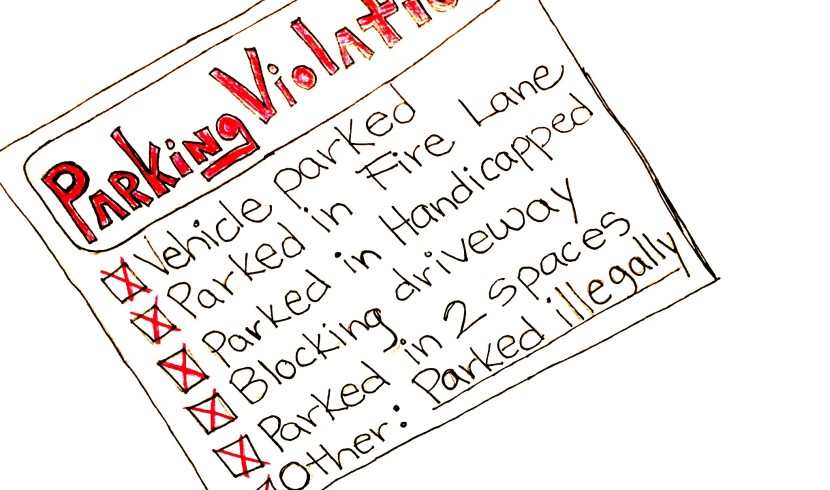 Parking Violatio
Vehicle parked
Parked in Fire Lane
Parked in Handicapped
Blocking driveway
Parked in 2 spaces
Other: Parked illegally